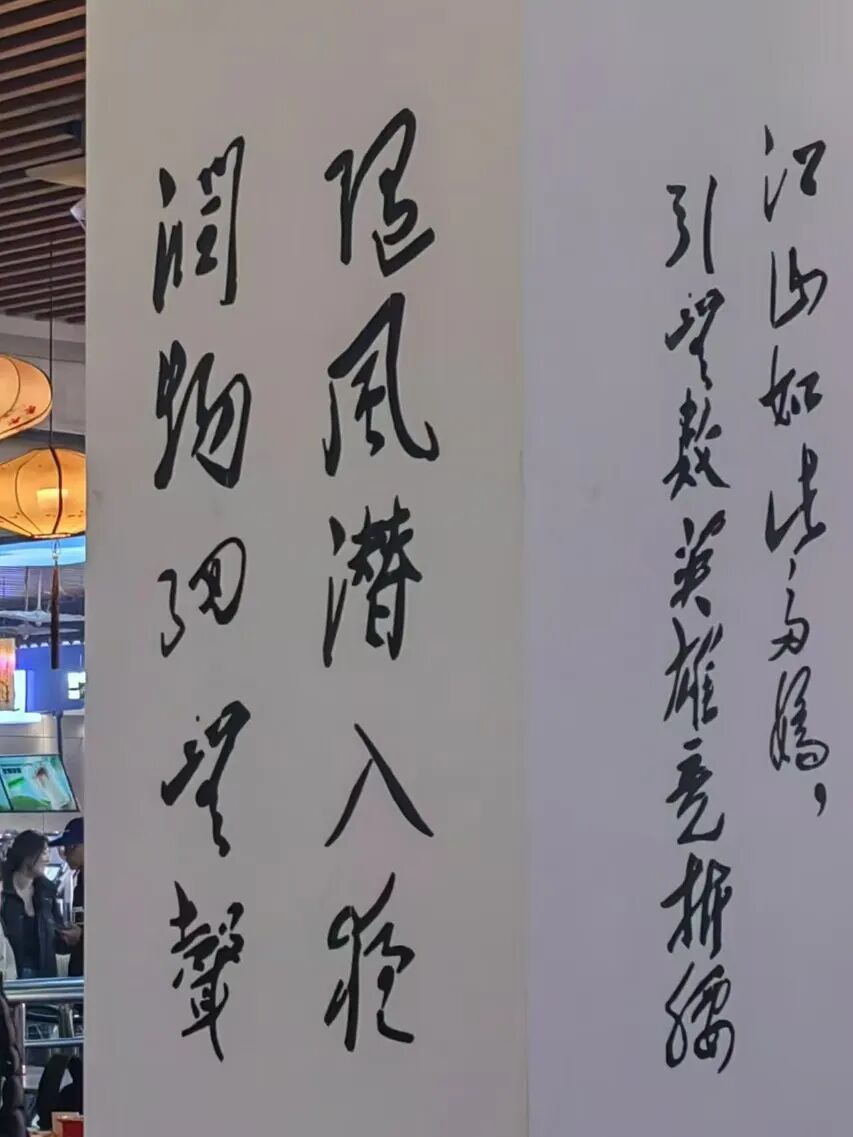 江山如此多娇，
引無数英雄竞折腰
随風潜入夜
潤物細無聲